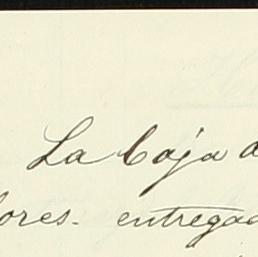 La Caja d
lores. entregad